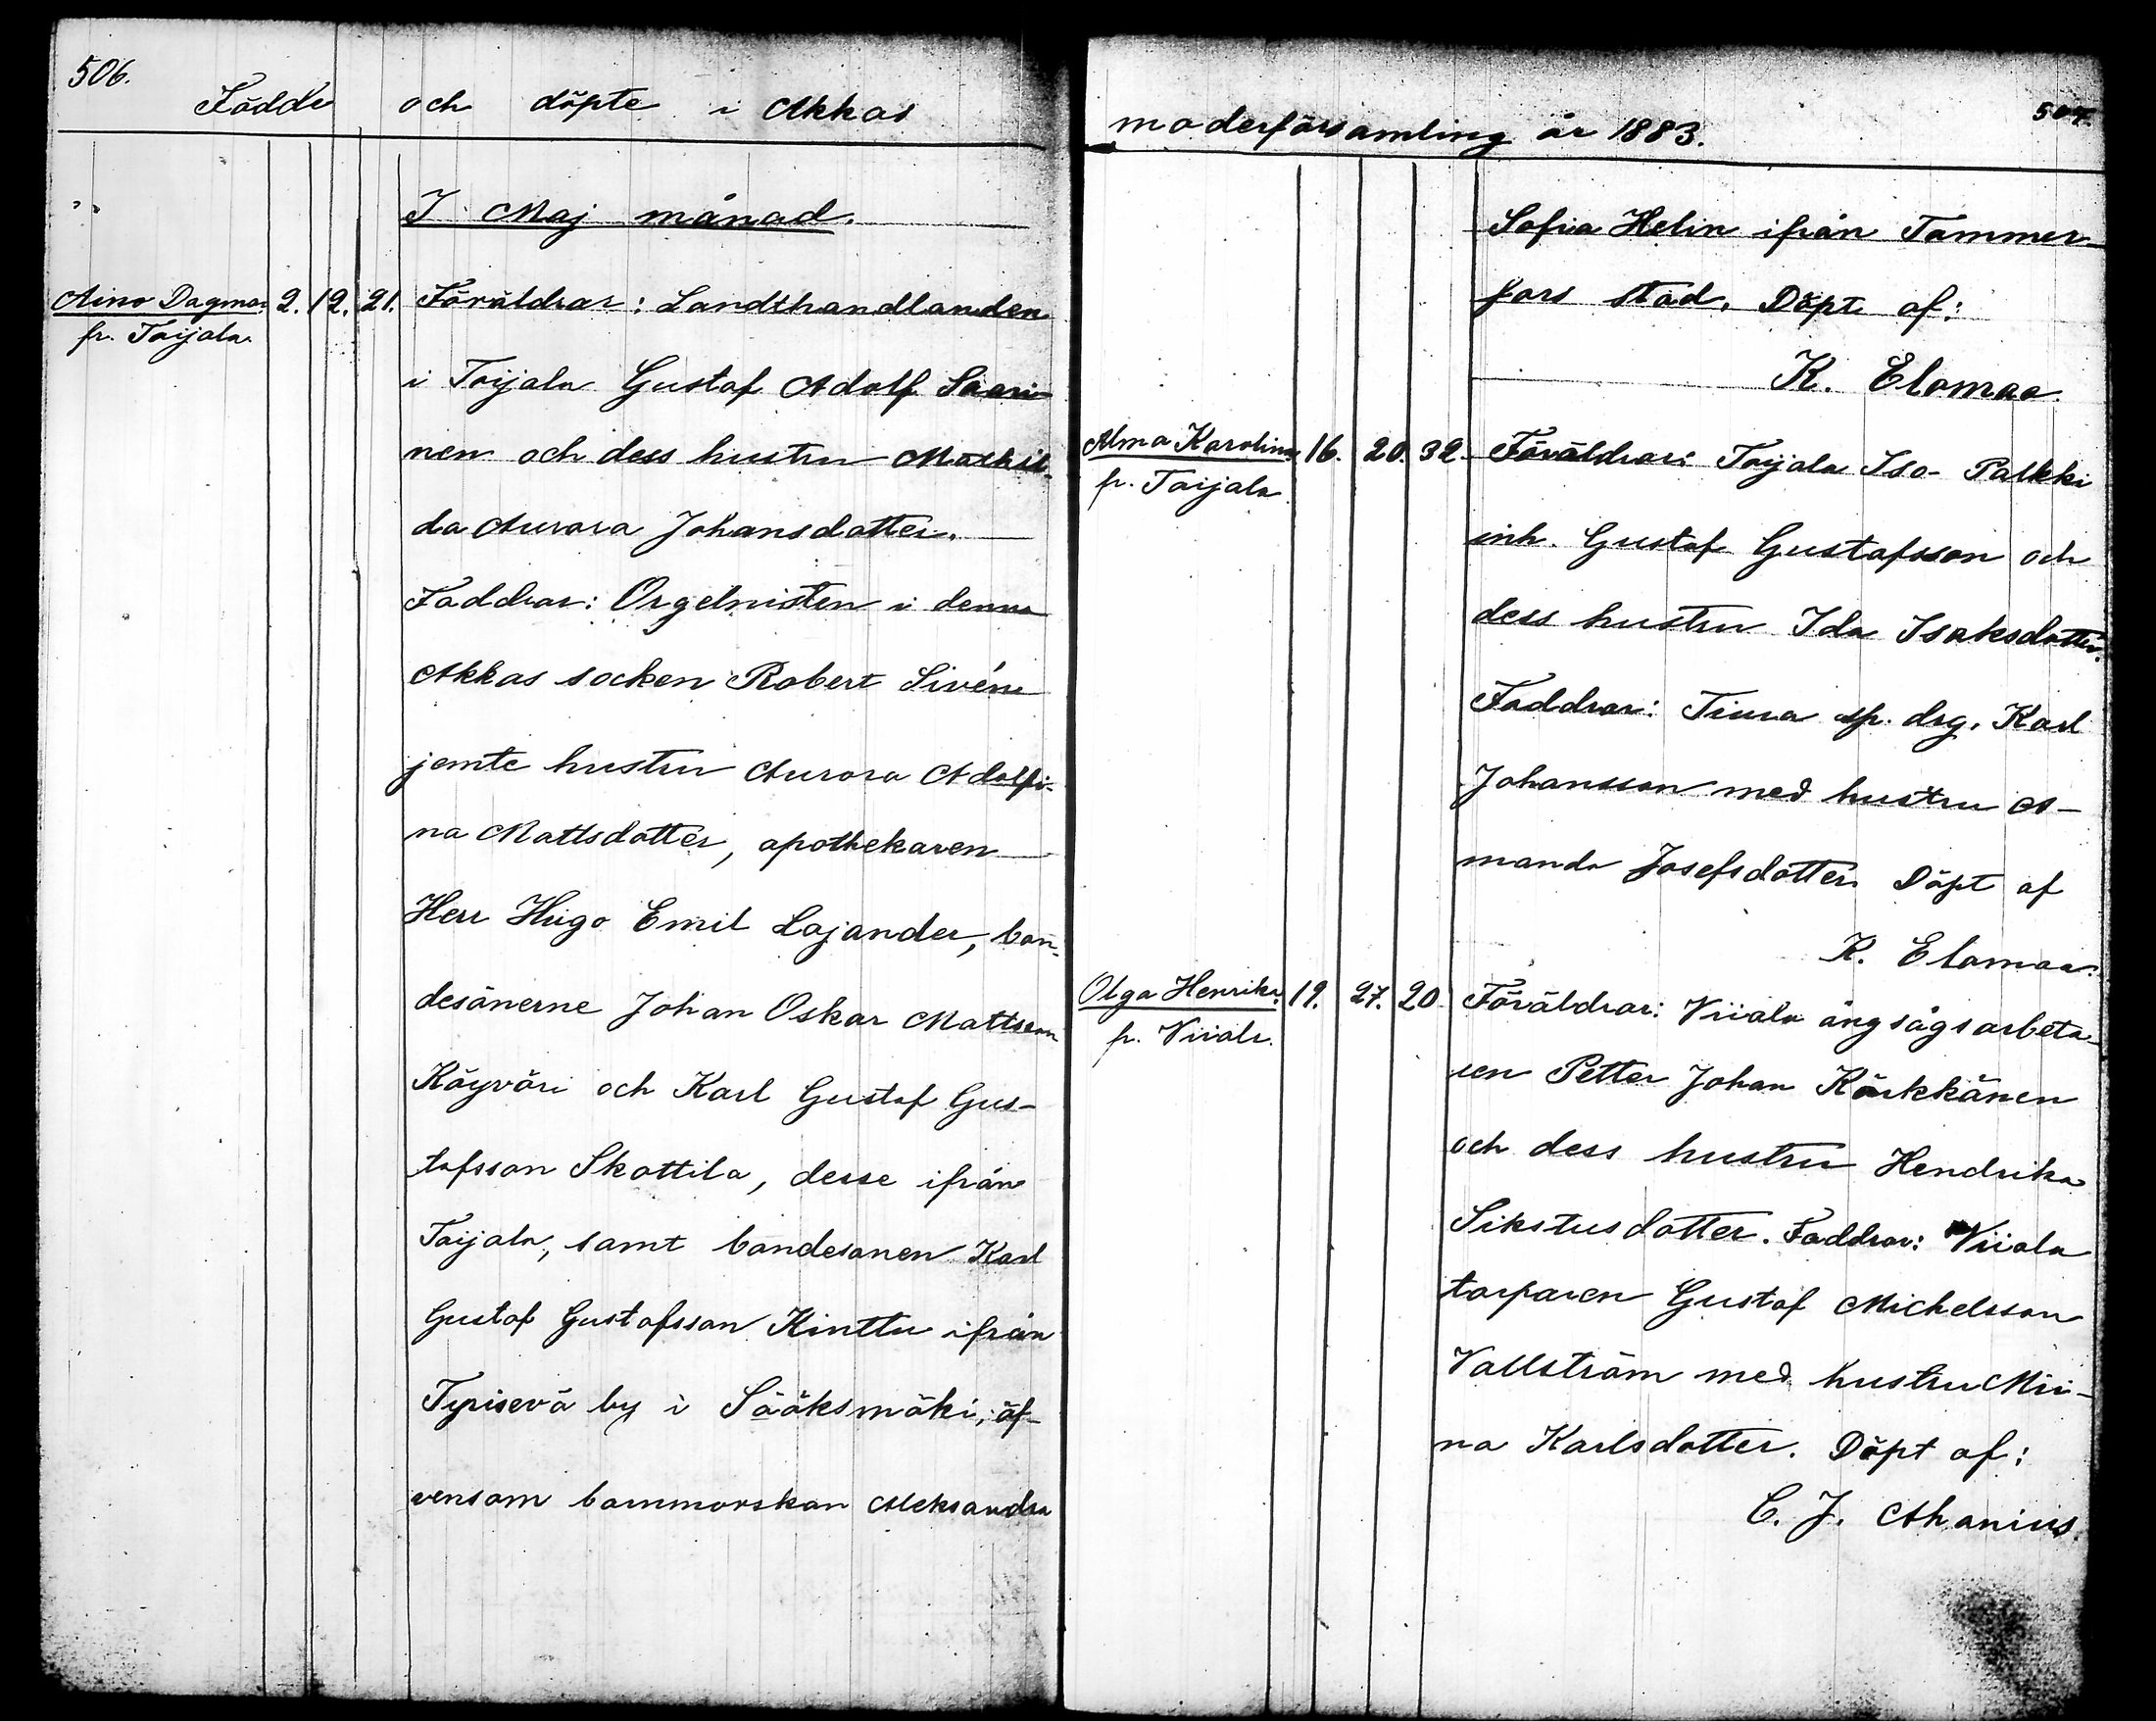 506.
Födde och döpte i Akkas
I Maj månad.
Aino Dagmar 2. 12. 21. Föräldrar: Landthandlanden
fr. Toijala.
i Toijala Gustaf Adolf Saari-
nen och dess hustru Mathil-
da Aurora Johansdotter.
Faddrar: Orgelnisten i denna
Akkas socken Robert Sivén
jemte hustru Aurora Adolfi-
na Mattsdotter, apothekaren
Herr Hugo Emil Lojander, bon-
desönerne Johan Oskar Mattsson
Köyväri och Karl Gustaf Gus-
tafsson Skottila, desse ifrån
Toijala, samt bondesonen Karl
Gustaf Gustafsson Kinttu ifrån
Tyrisevä by i Sääksmäki, äf-
vensom barnmorskan Aleksandra
moderförsamling år 1883. 507.
Sofia Helin ifrån Tammer-
fors stad. Döpt af:
K. Elomaa.
Alma Karolina 16. 20. 32. Föräldrar: Toijala Iso-Palkki
fr. Toijala
inh. Gustaf Gustafsson och
dess hustru Ida Isaksdotter.
Faddrar: Tiura sp. drg. Karl
Johansson med hustru A-
manda Josefsdotter. Döpt af
K. Elomaa.
Olga Henrika 19. 27. 20 Föräldrar: Viiala ångsågsarbeta-
fr. Viiala.
ren Petter Johan Kärkkänen
och dess hustru Hendrika
Sikstusdotter. Faddrar: Viiala
torparen Gustaf Michelsson
Vallström med hustru Mii-
na Karlsdotter. Döpt af:
C. J. Ahanius.